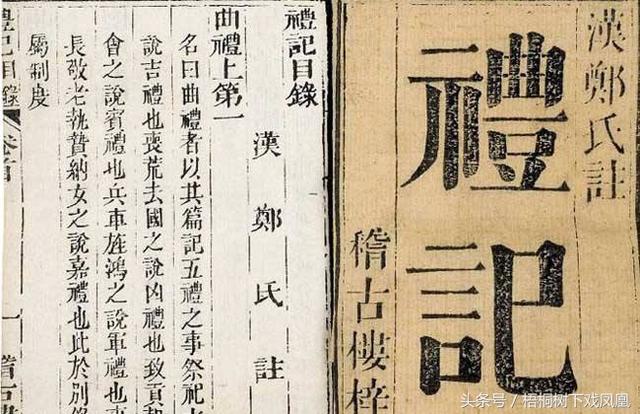 漢鄭氏註
禮記
稽古樓梓
禮記目錄
漢鄭氏註
曲禮上第一
名曰曲禮者以其篇記五禮之事祭祀
說吉禮也喪荒去國之說凶禮也致貢
會之說賓禮也兵車旌鴻之說軍禮也
長敬老執贄納女之說嘉禮也此於別錄
屬制度
禮記目錄 卷首 一 稽古
头条号/梧桐树下戏凤凰